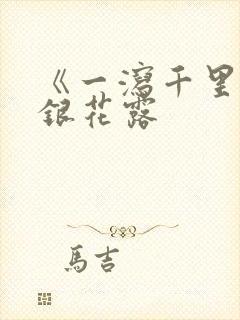 《一瀉千里
銀花露
馬吉